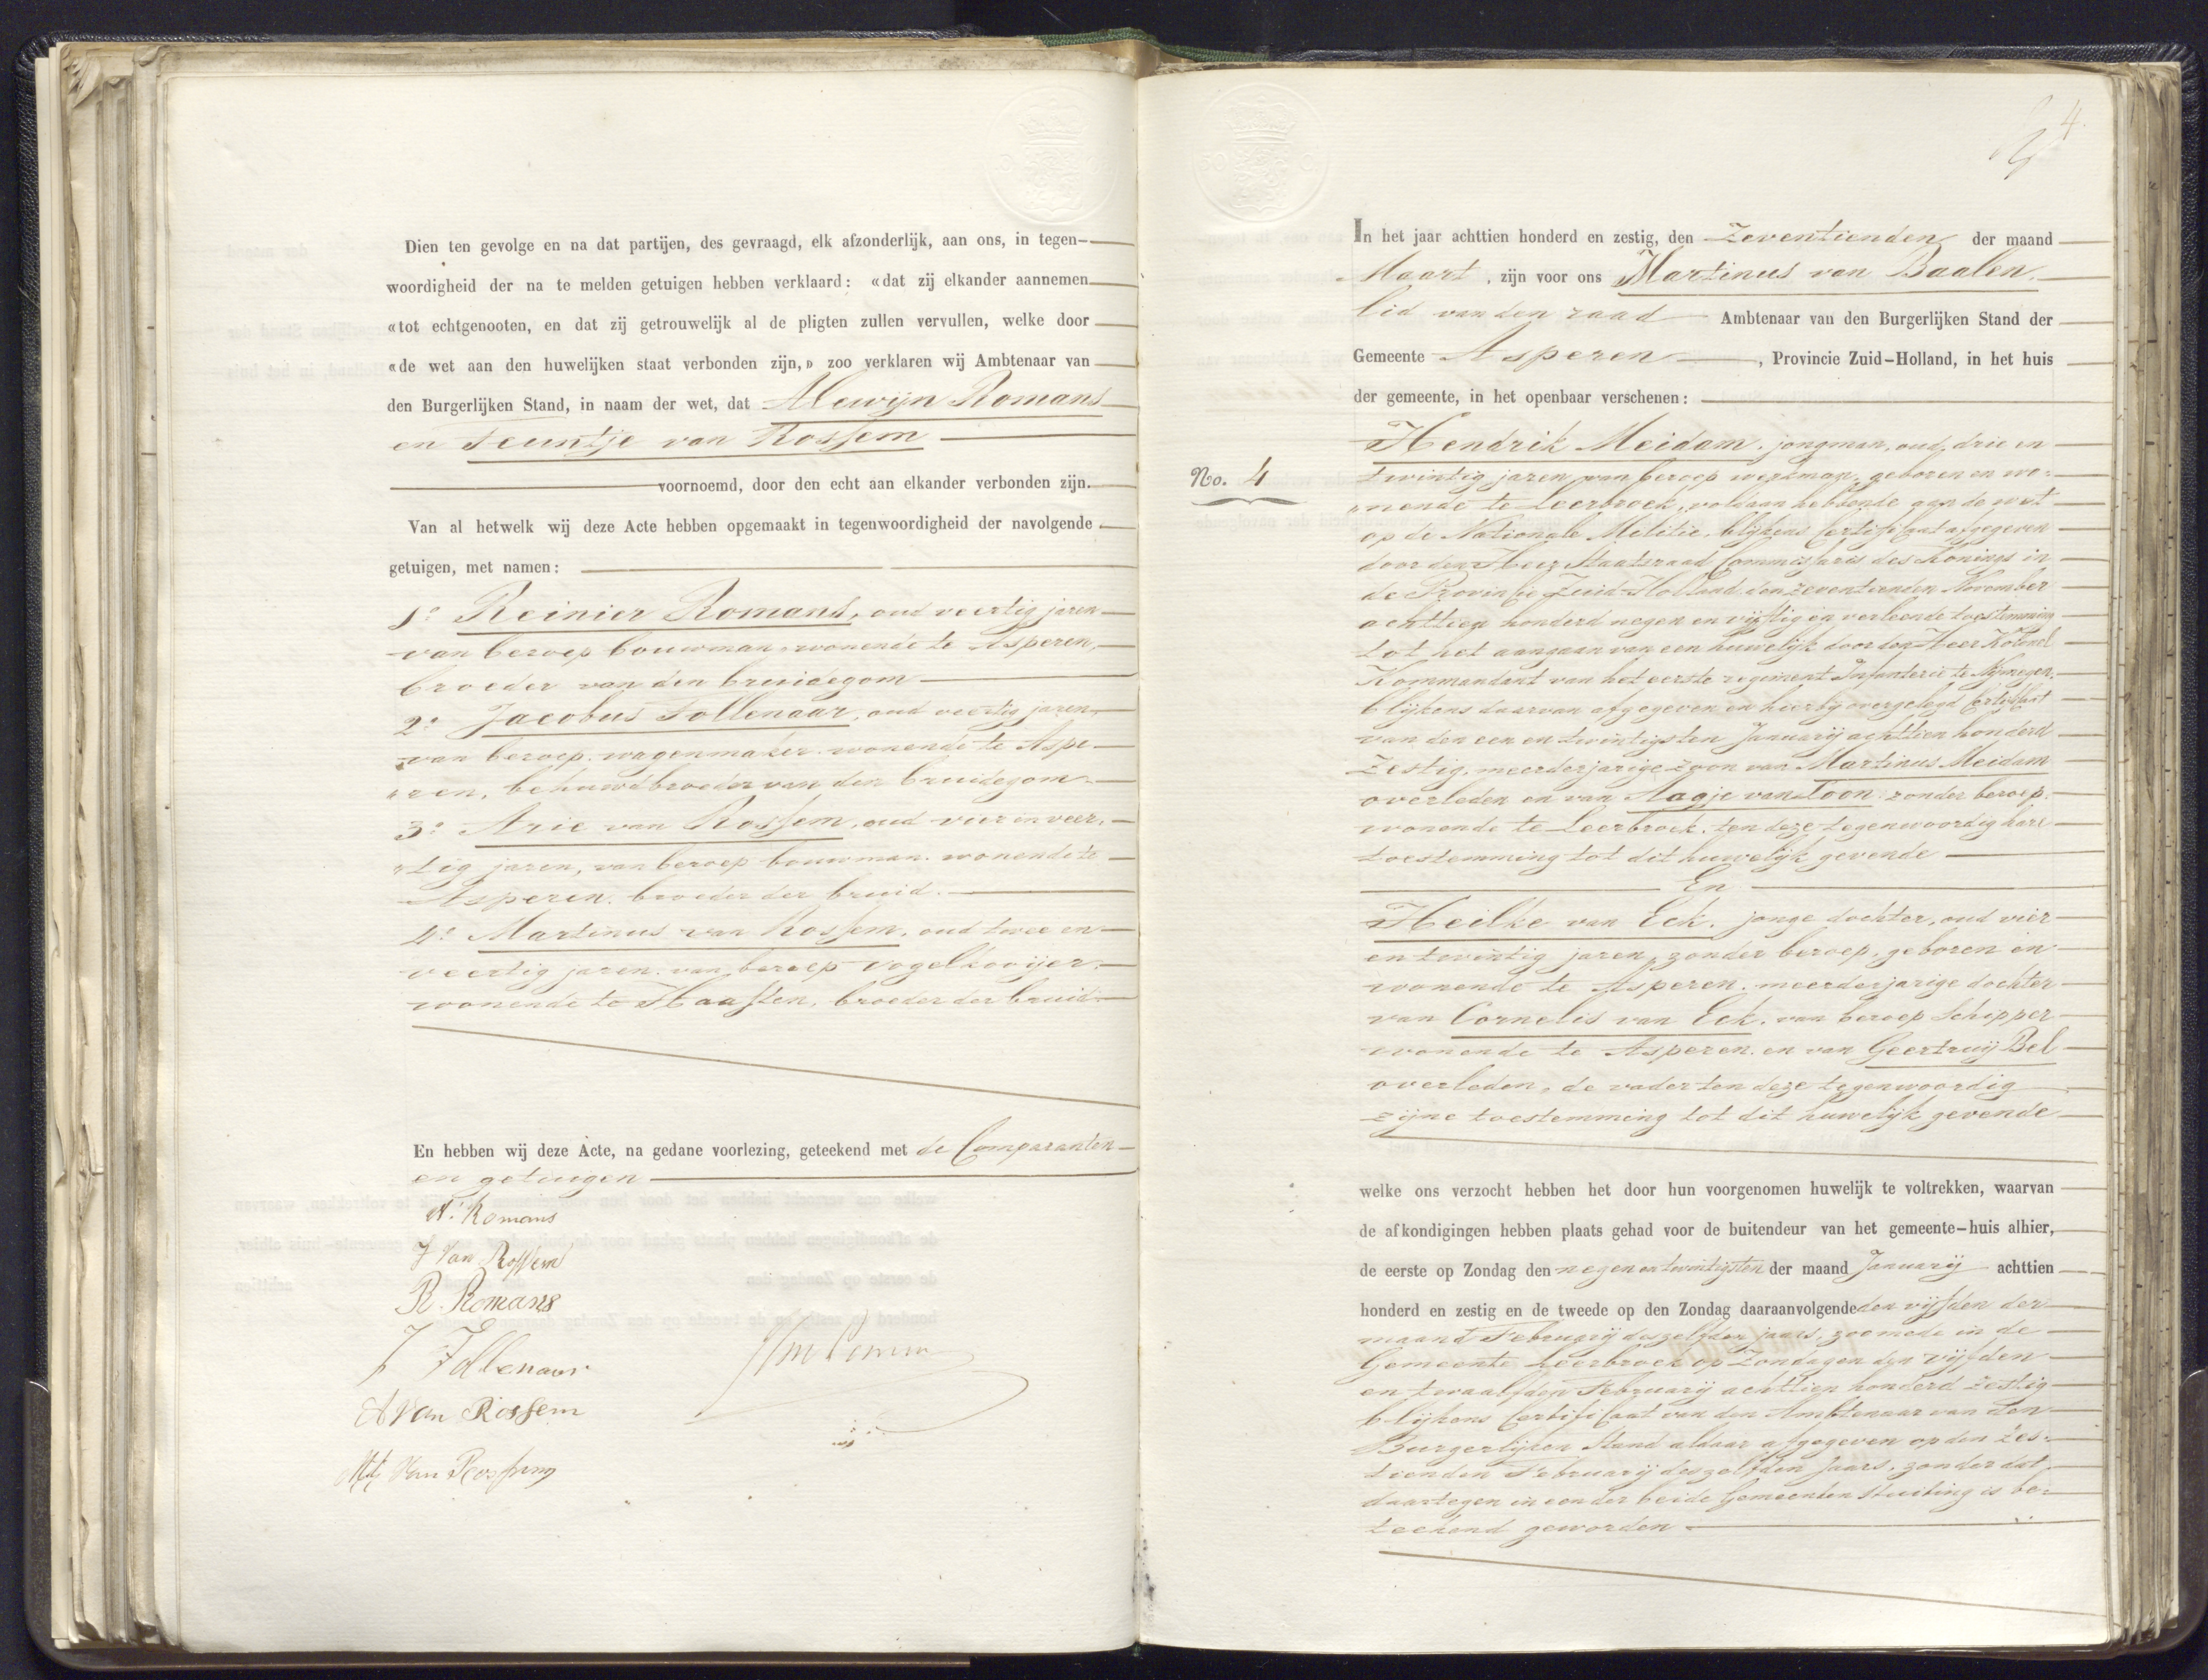 Dien ten gevolge en na dat partijen, des gevraagd, elk afzonderlijk, aan ons, in tegen-
woordigheid der na te melden getuigen hebben verklaard: «dat zij elkander aannemen
«tot echtgenooten, en dat zij getrouwelijk al de pligten zullen vervullen, welke door
«de wet aan den huwelijken staat verbonden zijn,» zoo verklaren wij Ambtenaar van
den Burgerlijken Stand, in naam der wet, dat Alewijn Romans
en Teuntje van Rossem
voornoemd, door den echt aan elkander verbonden zijn.
Van al hetwelk wij deze Acte hebben opgemaakt in tegenwoordigheid der navolgende
getuigen, met namen:
1o Reinier Romans, oud veertig jaren
van beroep bouwman, wonende te Asperen,
broeder van den bruidegom
2o Jacobus Tollenaar, oud veertig jaren,
van beroep wagenmaker wonende te Aspe-
"ren, behuwdbroeder van den bruidegom
3o Arie van Rossem, oud vier en veer-
"tig jaren, van beroep bouwman wonende te
Asperen, broeder der bruid.
4o Martinus van Rossem, oud twee en
veertig jaren van beroep vogelkooijer,
wonende te Haaften, broeder der bruid
En hebben wij deze Acte, na gedane voorlezing, geteekend met de Comparanten
en getuigen
A. Romans
T van Rossem
R. Romans
J Tollenaar
A van Rossem
van Rossem
4
In het jaar achttien honderd en zestig, den Zeventienden der maand
Maart, zijn voor ons Martinus van Baalen,
lid van den raad Ambtenaar van den Burgerlijken Stand der
Gemeente Asperen, Provincie Zuid-Holland, in het huis
der gemeente, in het openbaar verschenen:
No. 4
Hendrik Meidam, jongman, oud drie en
twintig jaren, van beroep werkman, geboren en wo-
"nende te Leerbroek, voldaan hebbende aan de wet
op de Nationale Militie, blijkens Certificaat afgegeven
door den Heer Staatsraad Commissaris des Konings in
de Provincie Zuid-Holland, den zeventienden November
achttien honderd negen en vijftig en verleende toestemming
tot het aangaan van een huwelijk door den Heer Kolonel
Kommandant van het eerste regiment Infanterie te Nijmegen,
blijkens daarvan afgegeven en hierbij overgelegd Certificaat
van den een en twintigsten Januarij achttien honderd
zestig, meerderjarige zoon van Martinus Meidam
overleden en van Aagje van Toon zonder beroep,
wonende te Leerbroek, ten deze tegenwoordig hare
toestemming tot dit huwelijk gevende
En
Heilke van Eck, jonge dochter, oud vier
en twintig jaren, zonder beroep, geboren en
wonende te Asperen, meerderjarige dochter
van Cornelis van Eck, van beroep Schipper
wonende te Asperen, en van Geertruij Bel
overleden, de vader ten deze tegenwoordig
zijne toestemming tot dit huwelijk gevende
welke ons verzocht hebben het door hun voorgenomen huwelijk te voltrekken, waarvan
de afkondigingen hebben plaats gehad voor de buitendeur van het gemeente-huis alhier,
de eerste op Zondag den negen en twintigsten der maand Januarij achttien
honderd en zestig en de tweede op den Zondag daaraanvolgende den vijfden der
maand Februarij deszelfden jaars, zoomede in de
Gemeente Leerbroek op Zondagen den vijfden
en twaalfden Februarij achttien honderd zestig
blijkens Certificaat van den Ambtenaar van den
Burgerlijken Stand aldaar afgegeven op den zes-
tienden Februarij deszelfden Jaars, zonder dat
daartegen in een der beide Gemeenten stuiting is be-
teekend geworden